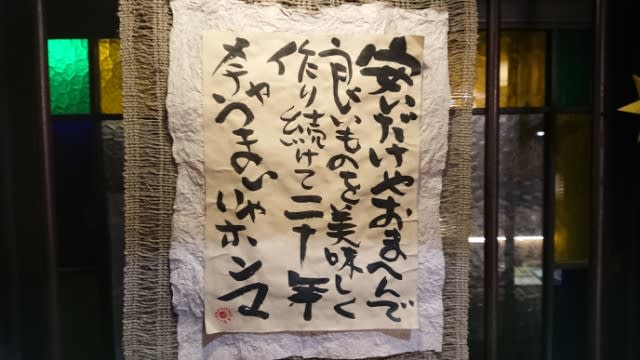 安いだけやおまへんで
良いものを美味しく
作り続けて二十年
うまいいやホンマ